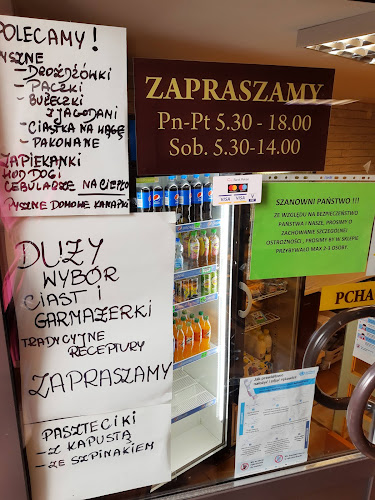 POLECAMY!
PYSZNE
- DROŻDŻÓWKI
- PĄCZKI
- BUŁECZKI
Z JAGODAMI
- CIASTKA NA WAGĘ
- PAKOWANE
ZAPIEKANKI
HOD DOGI
CEBULARZE NA CIEPŁO
PYSZNE DOMOWE KANAPKI
DUŻY
WYBÓR
CIAST I
GARMAŻERKI
TRADYCYJNE
RECEPTURY
ZAPRASZAMY
PASZTECIKI
- Z KAPUSTĄ
- ZE SZPINAKIEM
ZAPRASZAMY
Pn-Pt 5.30 - 18.00
Sob. 5.30-14.00
VISA
VISA
SZANOWNI PAŃSTWO !!!
ZE WZGLĘDU NA BEZPIECZEŃSTWO
PAŃSTWA I NASZE, PROSIMY O
ZACHOWANIE SZCZEGÓLNEJ
OSTROŻNOŚCI, PROSIMY BY W SKLEPIE
PRZEBYWAŁO MAX 2-3 OSOBY.
PCHA
pepsi
pepsi